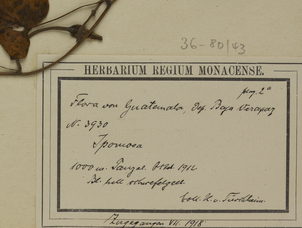 36-80/43
HERBARIUM REGIUM MONACENSE.
Flora von Guatemala, Dep. Baja Verapaz
N. 3930
Ipomoea
1000 m. Panzal. Okt 1912
Bl. hell schwefelgelb.
Coll. H. v. Türckheim.
Zugegangen VII. 1918